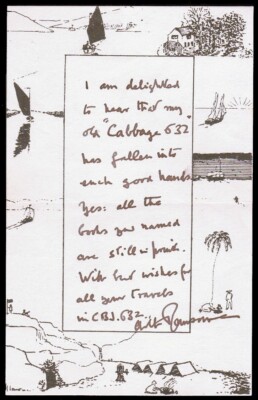 I am delighted
to hear that my
old "Cabbage 632"
has fallen into
such good hands.
Yes: all the
books you named
are still in print.
With best wishes for
all your travels
in CBJ.632.
Arthur Ransome